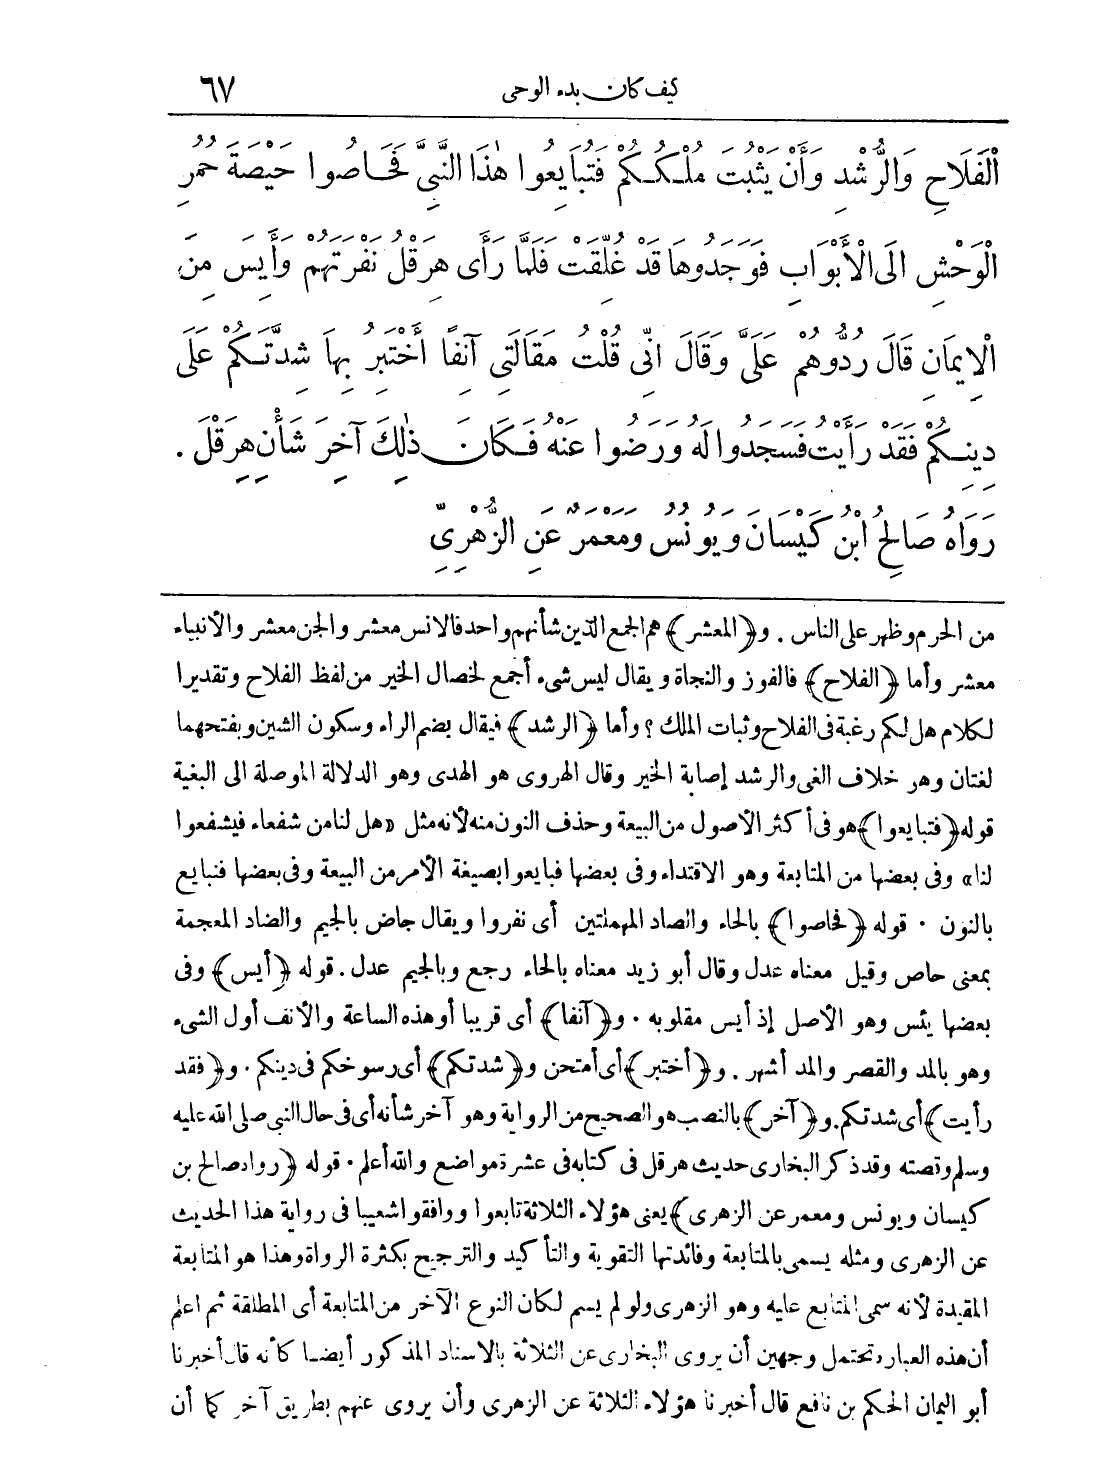 كيف كان بدء الوحى
٦٧
الْفَلَاحِ وَالرُّشْدِ وَأَنْ يَثْبُتَ مُلْكُكُمْ فَتُبَايِعُوا هٰذَا النَّبِىَّ فَحَاصُوا حَيْصَةَ حُمُرِ
الْوَحْشِ الَى الْأَبْوَابِ فَوَجَدُوهَا قَدْ غُلِّقَتْ فَلَمَّا رَأَى هِرَقْلُ نَفْرَتَهُمْ وَأَيِسَ مِنَ
الْإِيمَانِ قَالَ رُدُّوهُمْ عَلَىَّ وَقَالَ انِّى قُلْتُ مَقَالَتِى آنِفًا أَخْتَبِرُ بِهَا شِدَّتَكُمْ عَلَى
دِينِكُمْ فَقَدْ رَأَيْتُ فَسَجَدُوا لَهُ وَرَضُوا عَنْهُ فَكَانَ ذٰلِكَ آخِرَ شَأْنِ هِرَقْلَ .
رَوَاهُ صَالِحُ ابْنُ كَيْسَانَ وَيُونُسُ وَمَعْمَرٌ عَنِ الزُّهْرِىِّ
من الحرم وظهر على الناس . و﴿المعشر﴾ هم الجمع الذين شأنهم واحد فالانس معشر والجن معشر والأنبياء
معشر وأما ﴿الفلاح﴾ فالفوز والنجاة ويقال ليس شىء أجمع لخصال الخير من لفظ الفلاح وتقدير ا
لكلام هل لكم رغبة فى الفلاح وثبات الملك ؟ وأما ﴿الرشد﴾ فيقال بضم الراء وسكون الشين وبفتحهما
لغتان وهو خلاف الغى والرشد إصابة الخير وقال الهروى هو الهدى وهو الدلالة الموصلة الى البغية
قوله ﴿فتبايعوا﴾ هو فى أكثر الأصول من البيعة وحذف النون منه لأنه مثل «هل لنا من شفعاء فيشفعوا
لنا» وفى بعضها من المتابعة وهو الاقتداء وفى بعضها فبايعوا بصيغة الأمر من البيعة وفى بعضها فنبايع
بالنون . قوله ﴿فحاصوا﴾ بالحاء والصاد المهملتين أى نفروا ويقال جاض بالجيم والضاد المعجمة
بمعنى حاص وقيل معناه عدل وقال أبو زيد معناه بالحاء رجع وبالجيم عدل . قوله ﴿أيس﴾ وفى
بعضها يئس وهو الأصل إذ أيس مقلوبه . و﴿آنفا﴾ أى قريبا أو هذه الساعة والأنف أول الشىء
وهو بالمد والقصر والمد أشهر . و﴿أختبر﴾ أى أمتحن و﴿شدتكم﴾ أى رسوخكم فى دينكم . و﴿فقد
رأيت﴾ أى شدتكم . و﴿آخر﴾ بالنصب هو الصحيح من الرواية وهو آخر شأنه أى فى حال النبى صلى الله عليه
وسلم وقصته وقد ذكر البخارى حديث هرقل فى كتابه فى عشرة مواضع والله أعلم . قوله ﴿رواه صالح بن
كيسان ويونس ومعمر عن الزهرى﴾ يعنى هؤلاء الثلاثة تابعوا ووافقوا شعيبا فى رواية هذا الحديث
عن الزهرى ومثله يسمى بالمتابعة وفائدتها التقوية والتأكيد والترجيح بكثرة الرواة وهذا هو المتابعة
المقيدة لأنه سمى المتابع عليه وهو الزهرى ولو لم يسم لكان النوع الآخر من المتابعة أى المطلقة ثم اعلم
أن هذه العبارة تحتمل وجهين أن يروى البخارى عن الثلاثة بالاسناد المذكور أيضا كأنه قال أخبرنا
أبو اليمان الحكم بن نافع قال أخبرنا هؤلاء الثلاثة عن الزهرى وأن يروى عنهم بطريق آخر كما أن